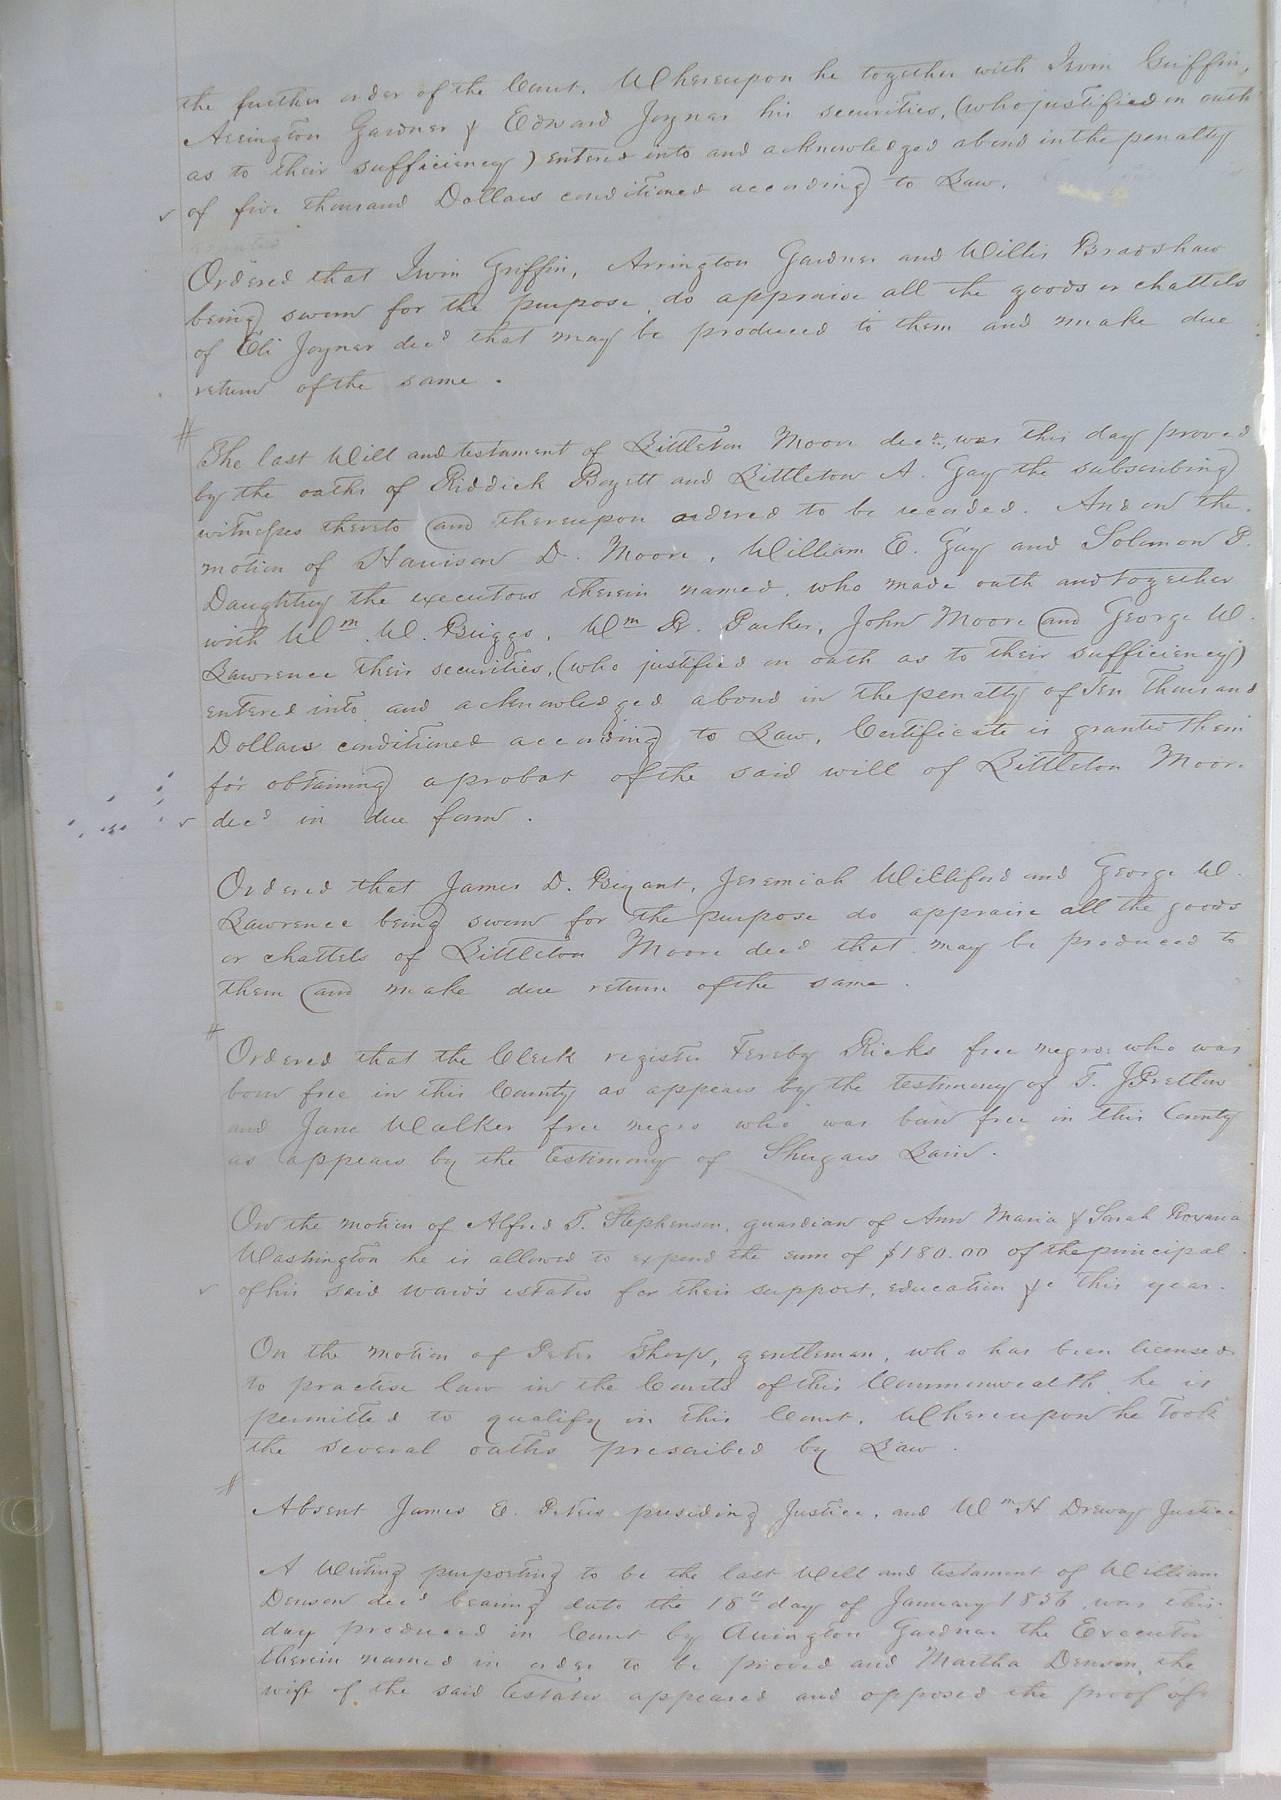 the further order of the Court. Whereupon he together with Irvin Griffin,
Arrington Gardner & Edward Joyner his securities, (who justified on oath
as to their sufficiency) entered into and acknowledged abond in the penalty
of five thousand Dollars conditioned according to Law.
Ordered that Irvin Griffin, Arrington Gardner and Willis Bradshaw
being sworn for the purpose do appraise all the goods or chattels
of Eli Joyner decd that may be produced to them and make due
return of the same.
The last Will and testament of Littleton Moore decd, was this day proved
by the oaths of Riddick Boyett and Littleton A. Gay the subscribing
witnesses thereto and thereupon ordered to be recorded. And on the
motion of Harrison D. Moore, William E. Gay and Solomon P.
Daughtry the executors therein named, who made oath and together
with Wm. W. Briggs, Wm R. Parker, John Moore and George W.
Lawrence their securities, (who justified on oath as to their sufficiency)
entered into and acknowledged abond in the penalty of Ten Thousand
Dollars conditioned according to Law, Certificate is granted them
for obtaining aprobat of the said will of Littleton Moore
decd in due form.
Ordered that James D. Bryant, Jeremiah Williford and George W.
Lawrence being sworn for the purpose do appraise all the goods
or chattels of Littleton Moore decd that may be produced to
them and make due return of the same.
Ordered that the Clerk register Fereby Ricks free negro who was
born free in this County as appears by the testimony of T. J. Pretlow
and Jane Walker free negro who was born free in this County
as appears by the testimony of Shugars Lain.
On the motion of Alfred T. Stephenson, guardian of Ann Maria & Sarah Roxana
Washington he is allowed to expend the sum of $180.00 of the principal
of his said ward's estates for their support, education &c this year.
On the motion of Peter Thorp, gentleman, who has been licensed
to practise law in the Courts of this Commonwealth he is
permitted to qualify in this Court, Whereupon he took
the several oaths prescribed by Law.
Absent James E. Peters presiding Justice, and Wm H Drewry Justice
A Writing purporting to be the last Will and testament of William
Denson decd bearing date the 18" day of January 1856 was this
day produced in Court by Arrington Gardner the Executor
therein named in order to be proved and Martha Denson, the
wife of the said testator appeared and opposed the proof of